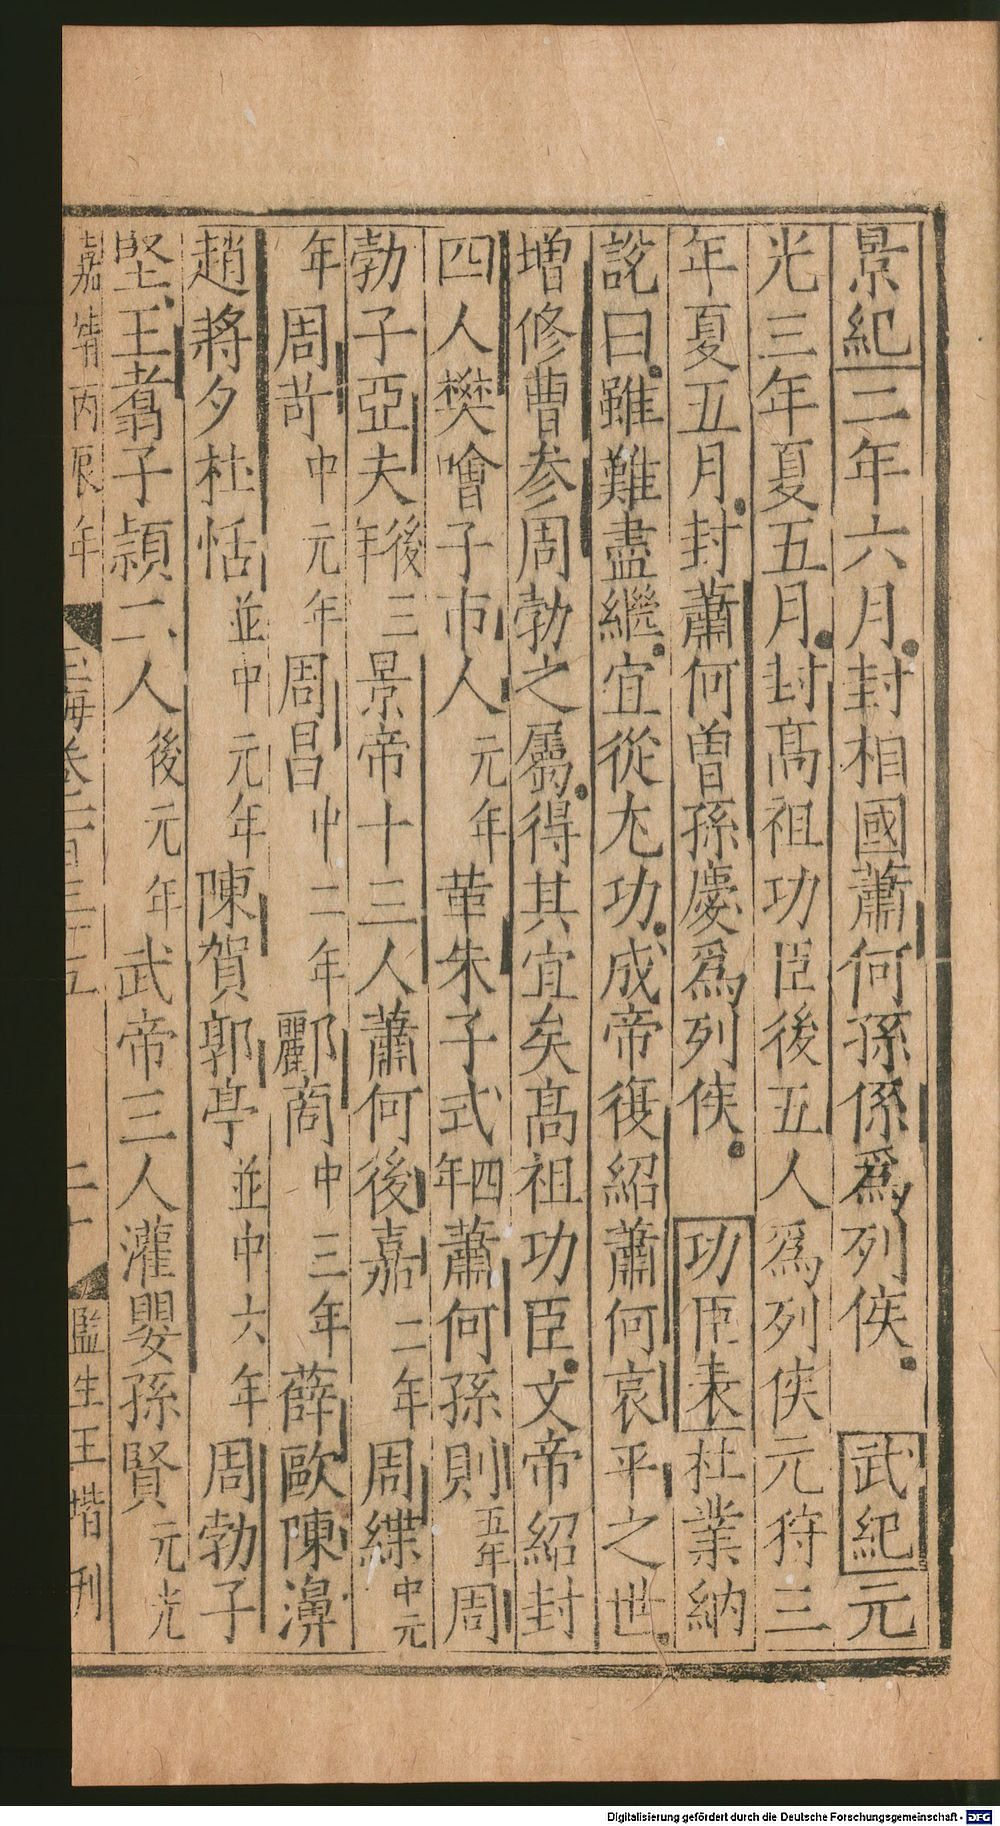 景紀二年六月封相國蕭何孫係爲列侯武紀元
光三年夏五月封高祖功臣後五人爲列侯元狩三
年夏五月封蕭何曾孫慶爲列侯功臣表杜業納
說曰雖難盡繼宜從尤功成帝復紹蕭何哀平之世
增修曹參周勃之屬得其宜矣高祖功臣文帝紹封
四人樊噲子市人元年革朱子式四年蕭何孫則五年周
勃子亞夫後三年景帝十三人蕭何後嘉二年周緤中元
年周苛中元年周昌中二年酈商中三年薛歐陳濞
趙將夕杜恬並中元年陳賀郭亭並中六年周勃子
堅王翥子頴二人後元年武帝三人灌嬰孫賢元光
嘉靖丙辰年 玉海卷一百三十五 二十 監生王堦刊
Digitalisierung gefördert durch die Deutsche Forschungsgemeinschaft - DFG